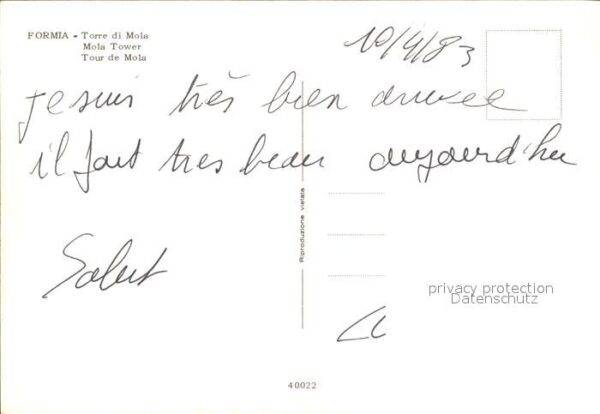 FORMIA - Torre di Mola
Mola Tower
Tour de Mola
10/4/83
Je suis très bien arrivée
il fait tres beau aujourd'hui
Salut
Riproduzione vietata
privacy protection
Datenschutz
40022